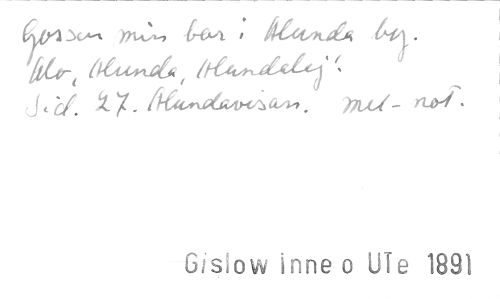 Gossen min bor i Alunda by.
Alo, Alunda, Alundalej!
Sid. 27. Alundavisan. mel-not.
Gislow inne o UTe 1891